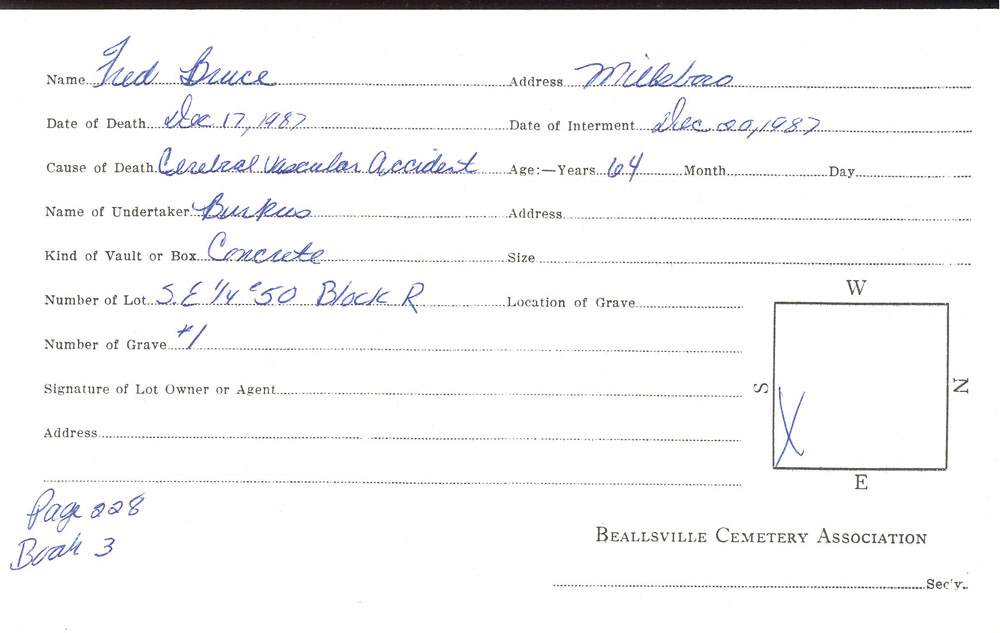 Name Fred Bruce Address Millsboro
Date of Death Dec 17, 1987 Date of Interment Dec. 20, 1987
Cause of Death Cerebral Vascular Accident Age:—Years 64 Month Day
Name of Undertaker Burkus Address
Kind of Vault or Box Concrete Size
Number of Lot S.E 1/4 50 Block R Location of Grave
Number of Grave #1
Signature of Lot Owner or Agent
Address
W
S
N
X
E
Page 228
Book 3
BEALLSVILLE CEMETERY ASSOCIATION
Sec'y.